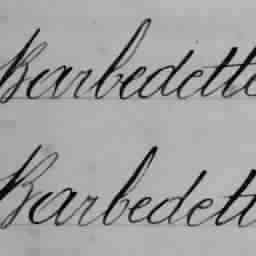 Barbedette
Barbedett